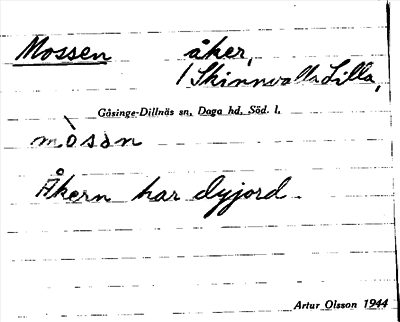 Mossen åker,
Skinnvalla Lilla,
Gåsinge-Dillnäs sn. Daga hd. Söd. l.
mòsan
Åkern har dyjord.
Artur Olsson 1944